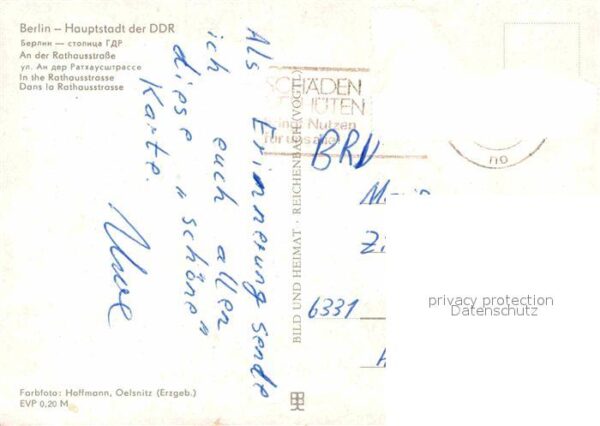 Berlin – Hauptstadt der DDR
Берлин — столица ГДР
An der Rathausstraße
ул. Ан дер Ратхаусштрассе
In the Rathausstrasse
Dans la Rathausstrasse
Als Erinnerung sende
ich euch allen
diese "schöne"
Karte.
Uwe
SCHÄDEN
VERHÜTEN
Nutzen
für uns alle
BILD UND HEIMAT · REICHENBACH (VOGTL)
BRD
6331
privacy protection
Datenschutz
Farbfoto: Hoffmann, Oelsnitz (Erzgeb.)
EVP 0,20 M